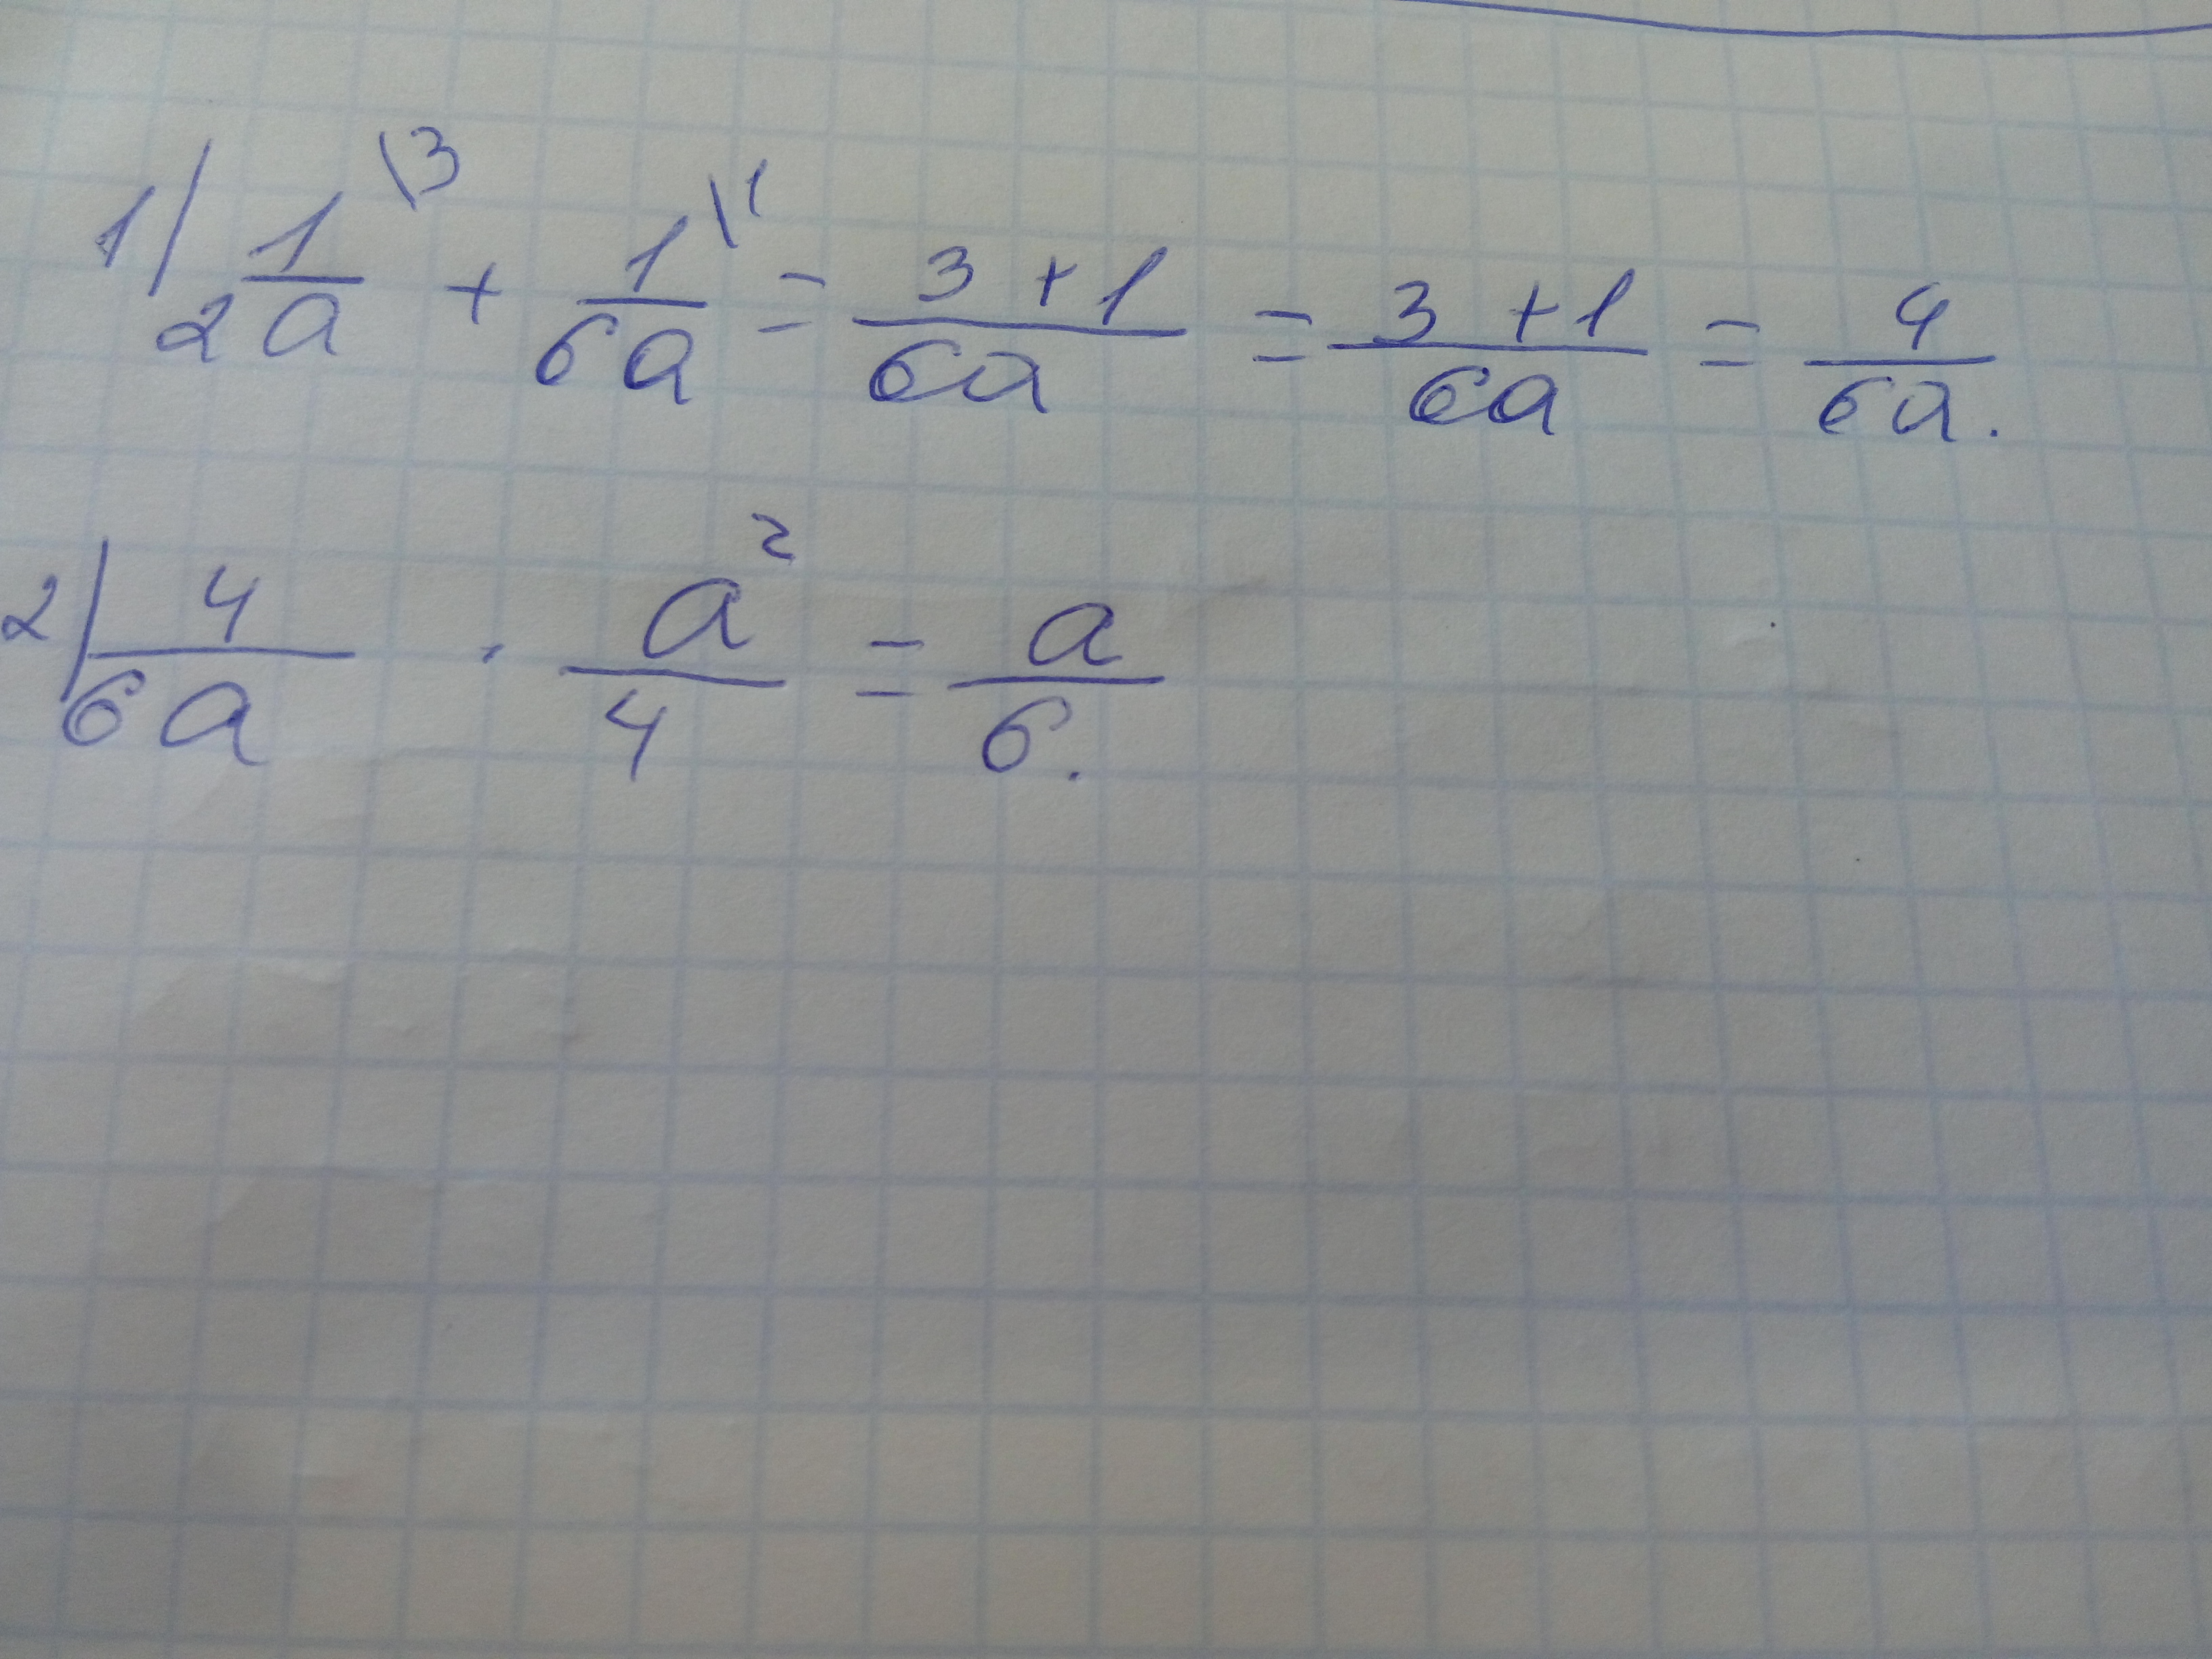 1/ 1/2a \3 + 1/6a \1 = 3+1/6a = 3+1/6a = 4/6a.
2/ 4/6a · a²/4 = a/6.